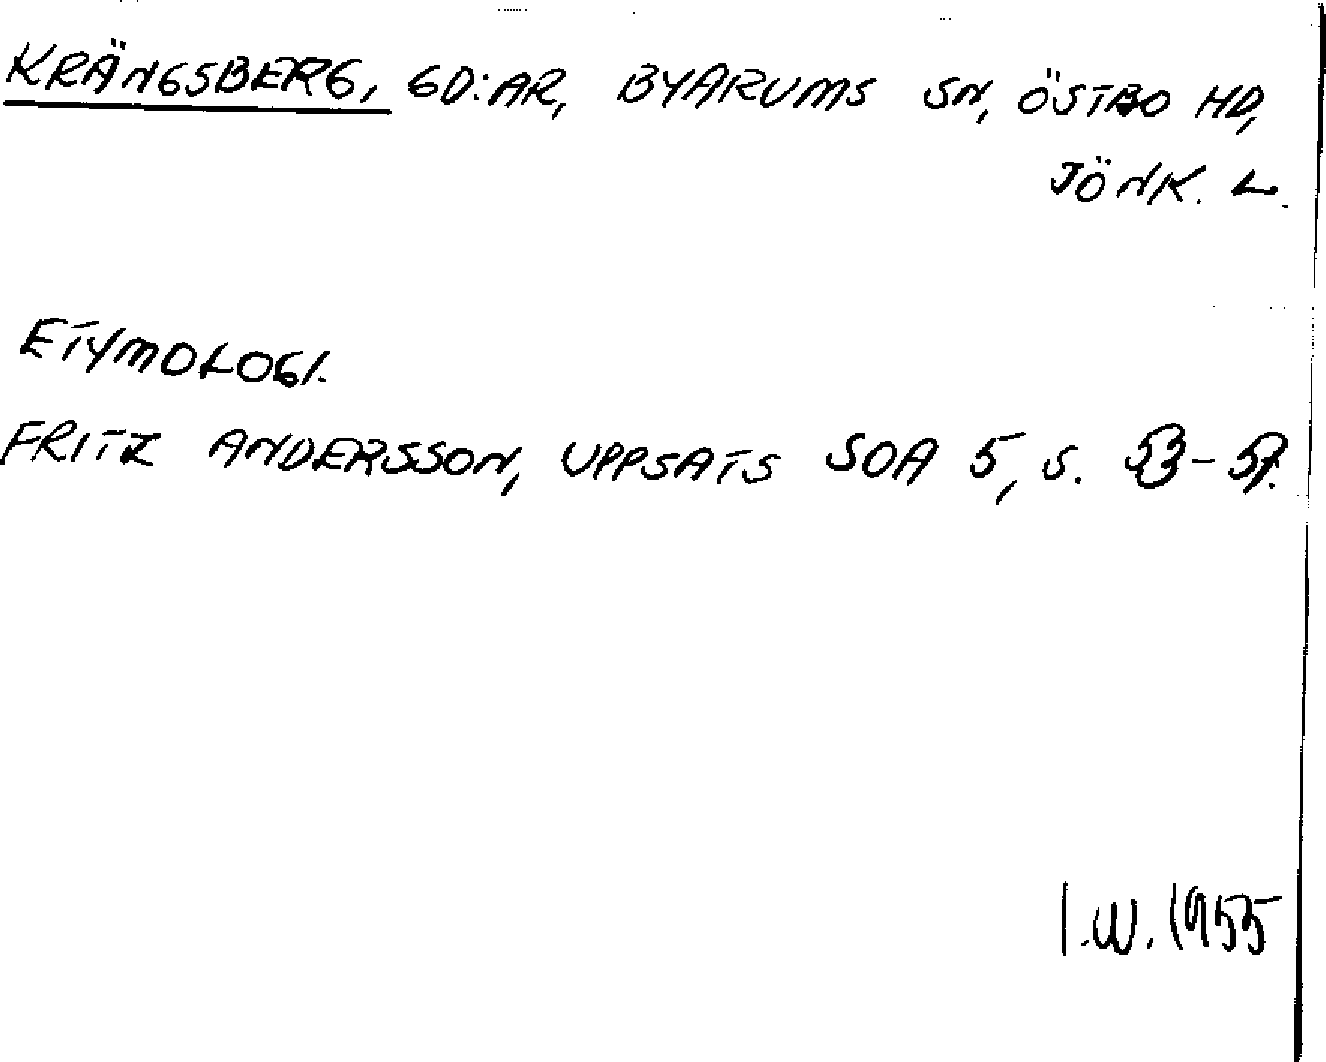 KRÄNGSBERG, GD:AR, BYARUMS SN, ÖSTBO HD,
JÖNK. L.
ETYMOLOGI.
FRITZ ANDERSSON, UPPSATS SOA 5, S. 53-57.
I.W. 1955